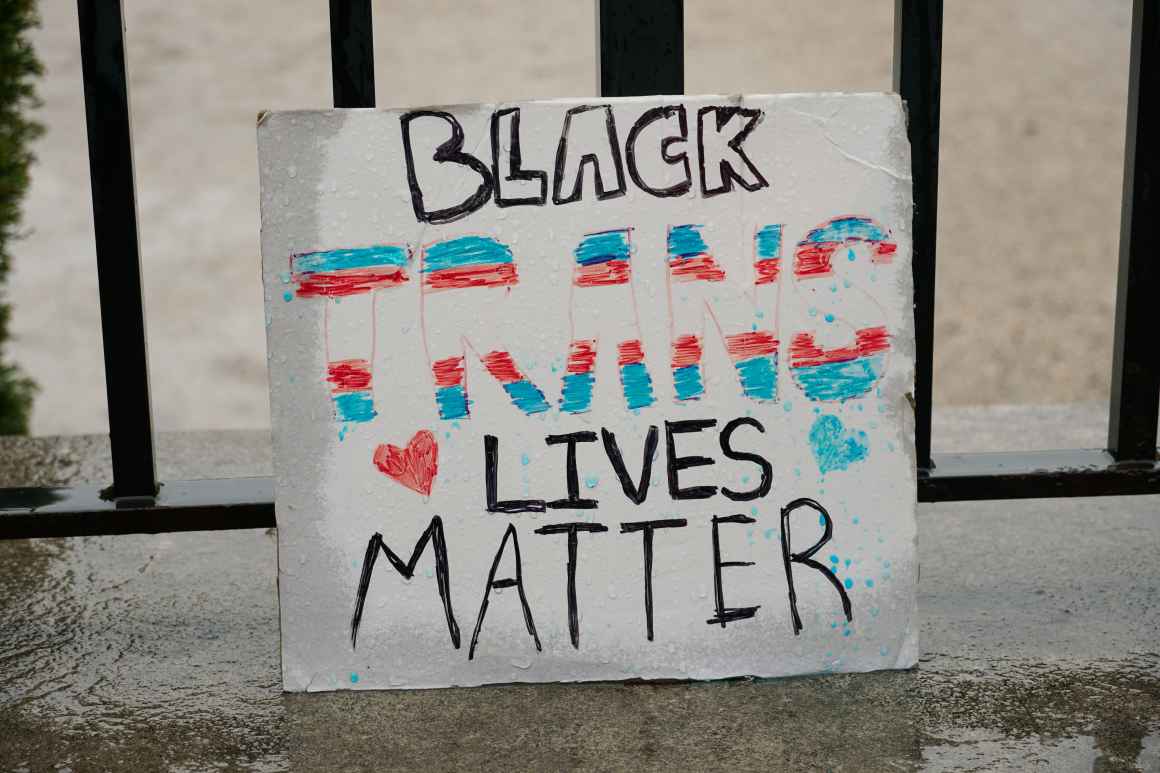 BLACK
TRANS
LIVES
MATTER